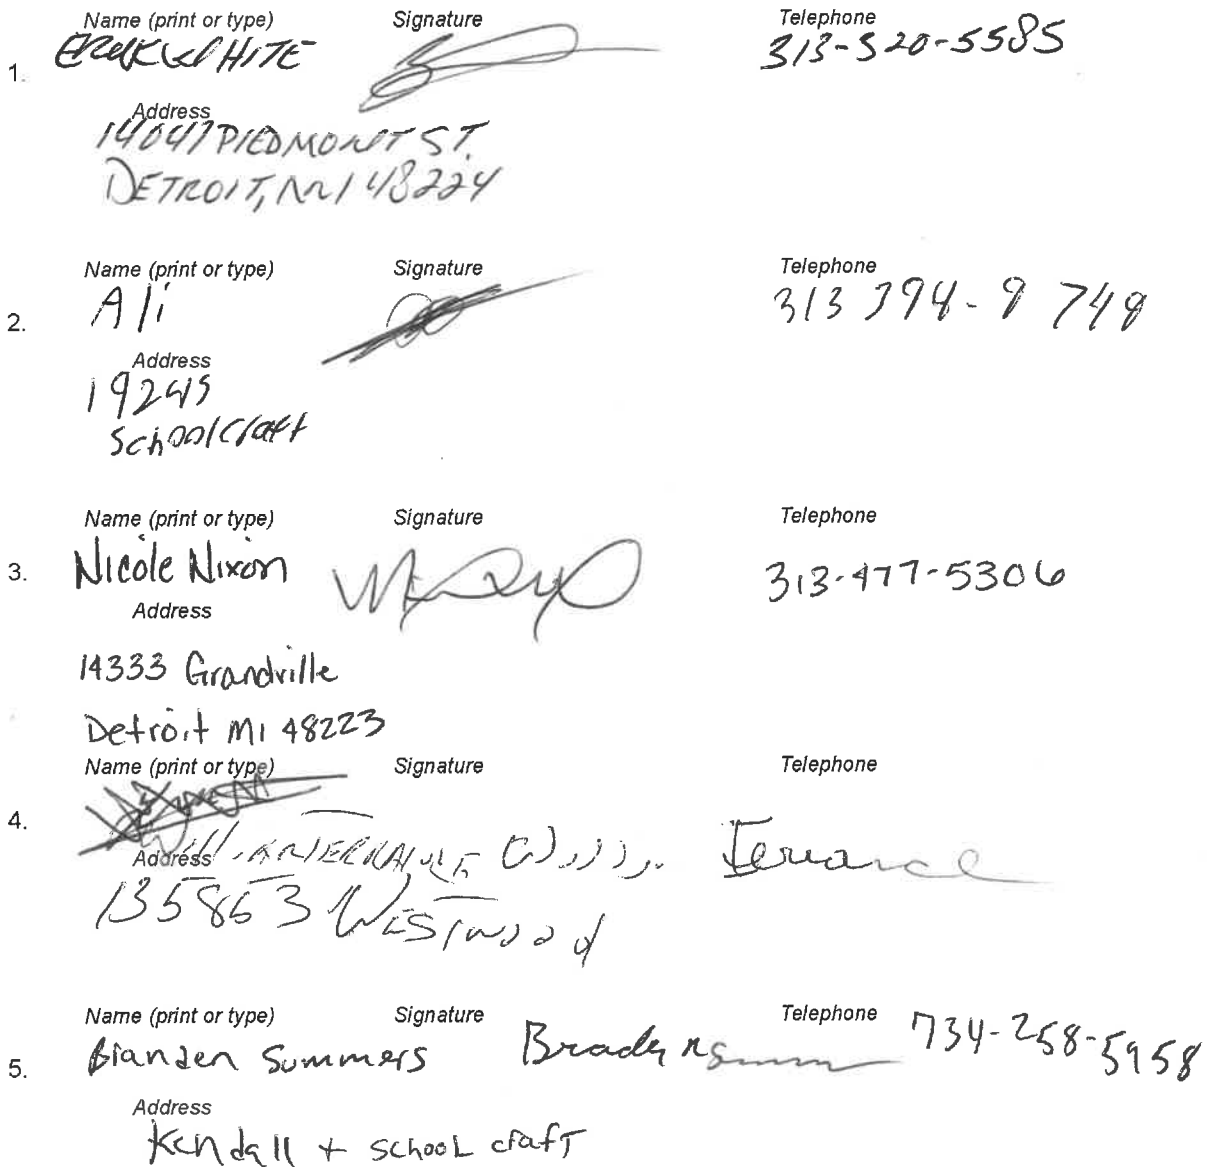 Name (print or type) Signature Telephone
1. EREK WHITE 313-520-5585
Address
14047 PIEDMONT ST.
DETROIT, MI 48224
Name (print or type) Signature Telephone
2. Ali 313 394-9749
Address
19245
Schoolcraft
Name (print or type) Signature Telephone
3. Nicole Nixon 313-477-5306
Address
14333 Grandville
Detroit MI 48223
Name (print or type) Signature Telephone
4.
Address
135853 WESTWOOD
Name (print or type) Signature Telephone
5. Branden Summers 734-258-5958
Address
Kendall + school craft